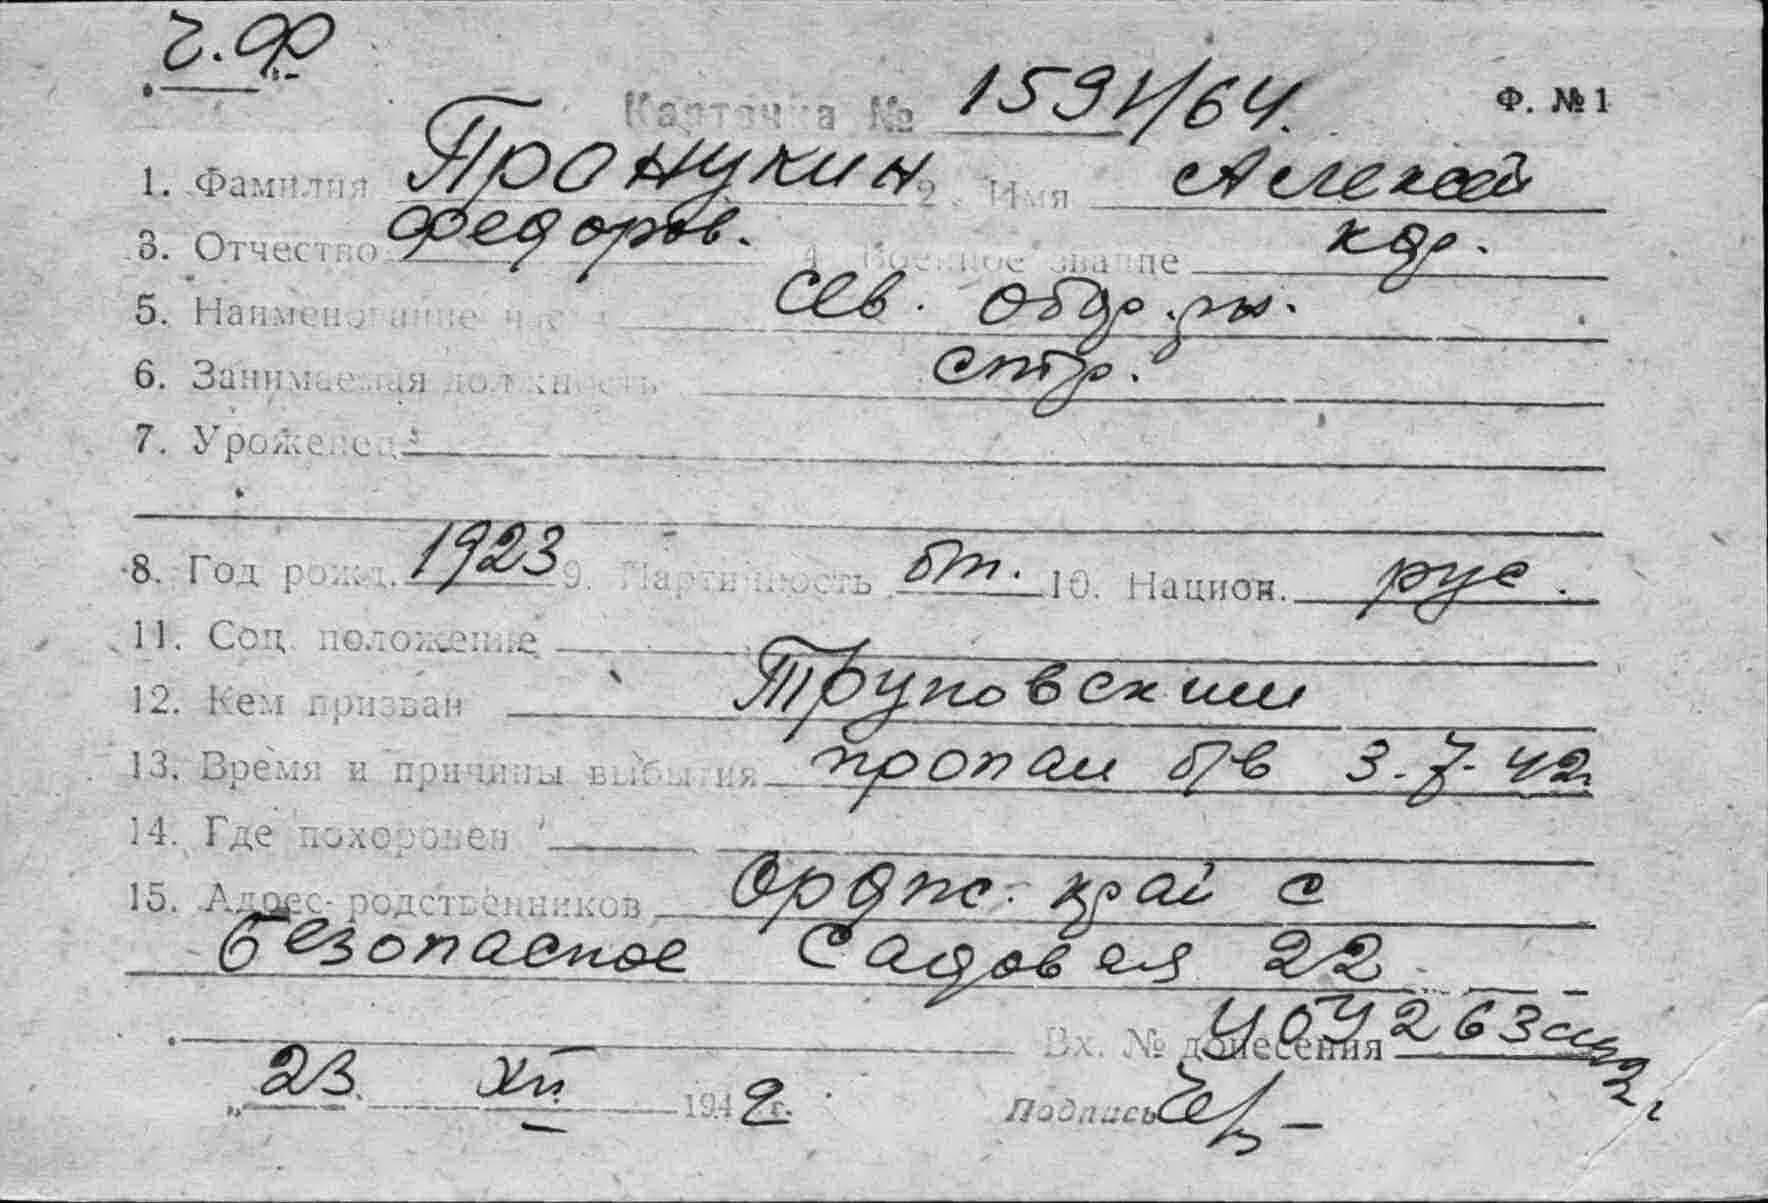 Ч.Ф
Карточка № 1591/64. Ф. №1
1. Фамилия Пронукин 2. Имя Алексей
3. Отчество Федоров. 4. Военное звание кдр.
5. Наименование части Сев. обор.
6. Занимаемая должность стр.
7. Уроженец
8. Год рожд. 1923 9. Партийность бп. 10. Национ. рус.
11. Соц. положение
12. Кем призван Труновским
13. Время и причины выбытия пропал б/в 3.7.42г
14. Где похоронен
15. Адрес родственников Ордж. край с
Безопасное Садовая 22
Вх. № донесения
„ 23. XII 1942 г. Подпись